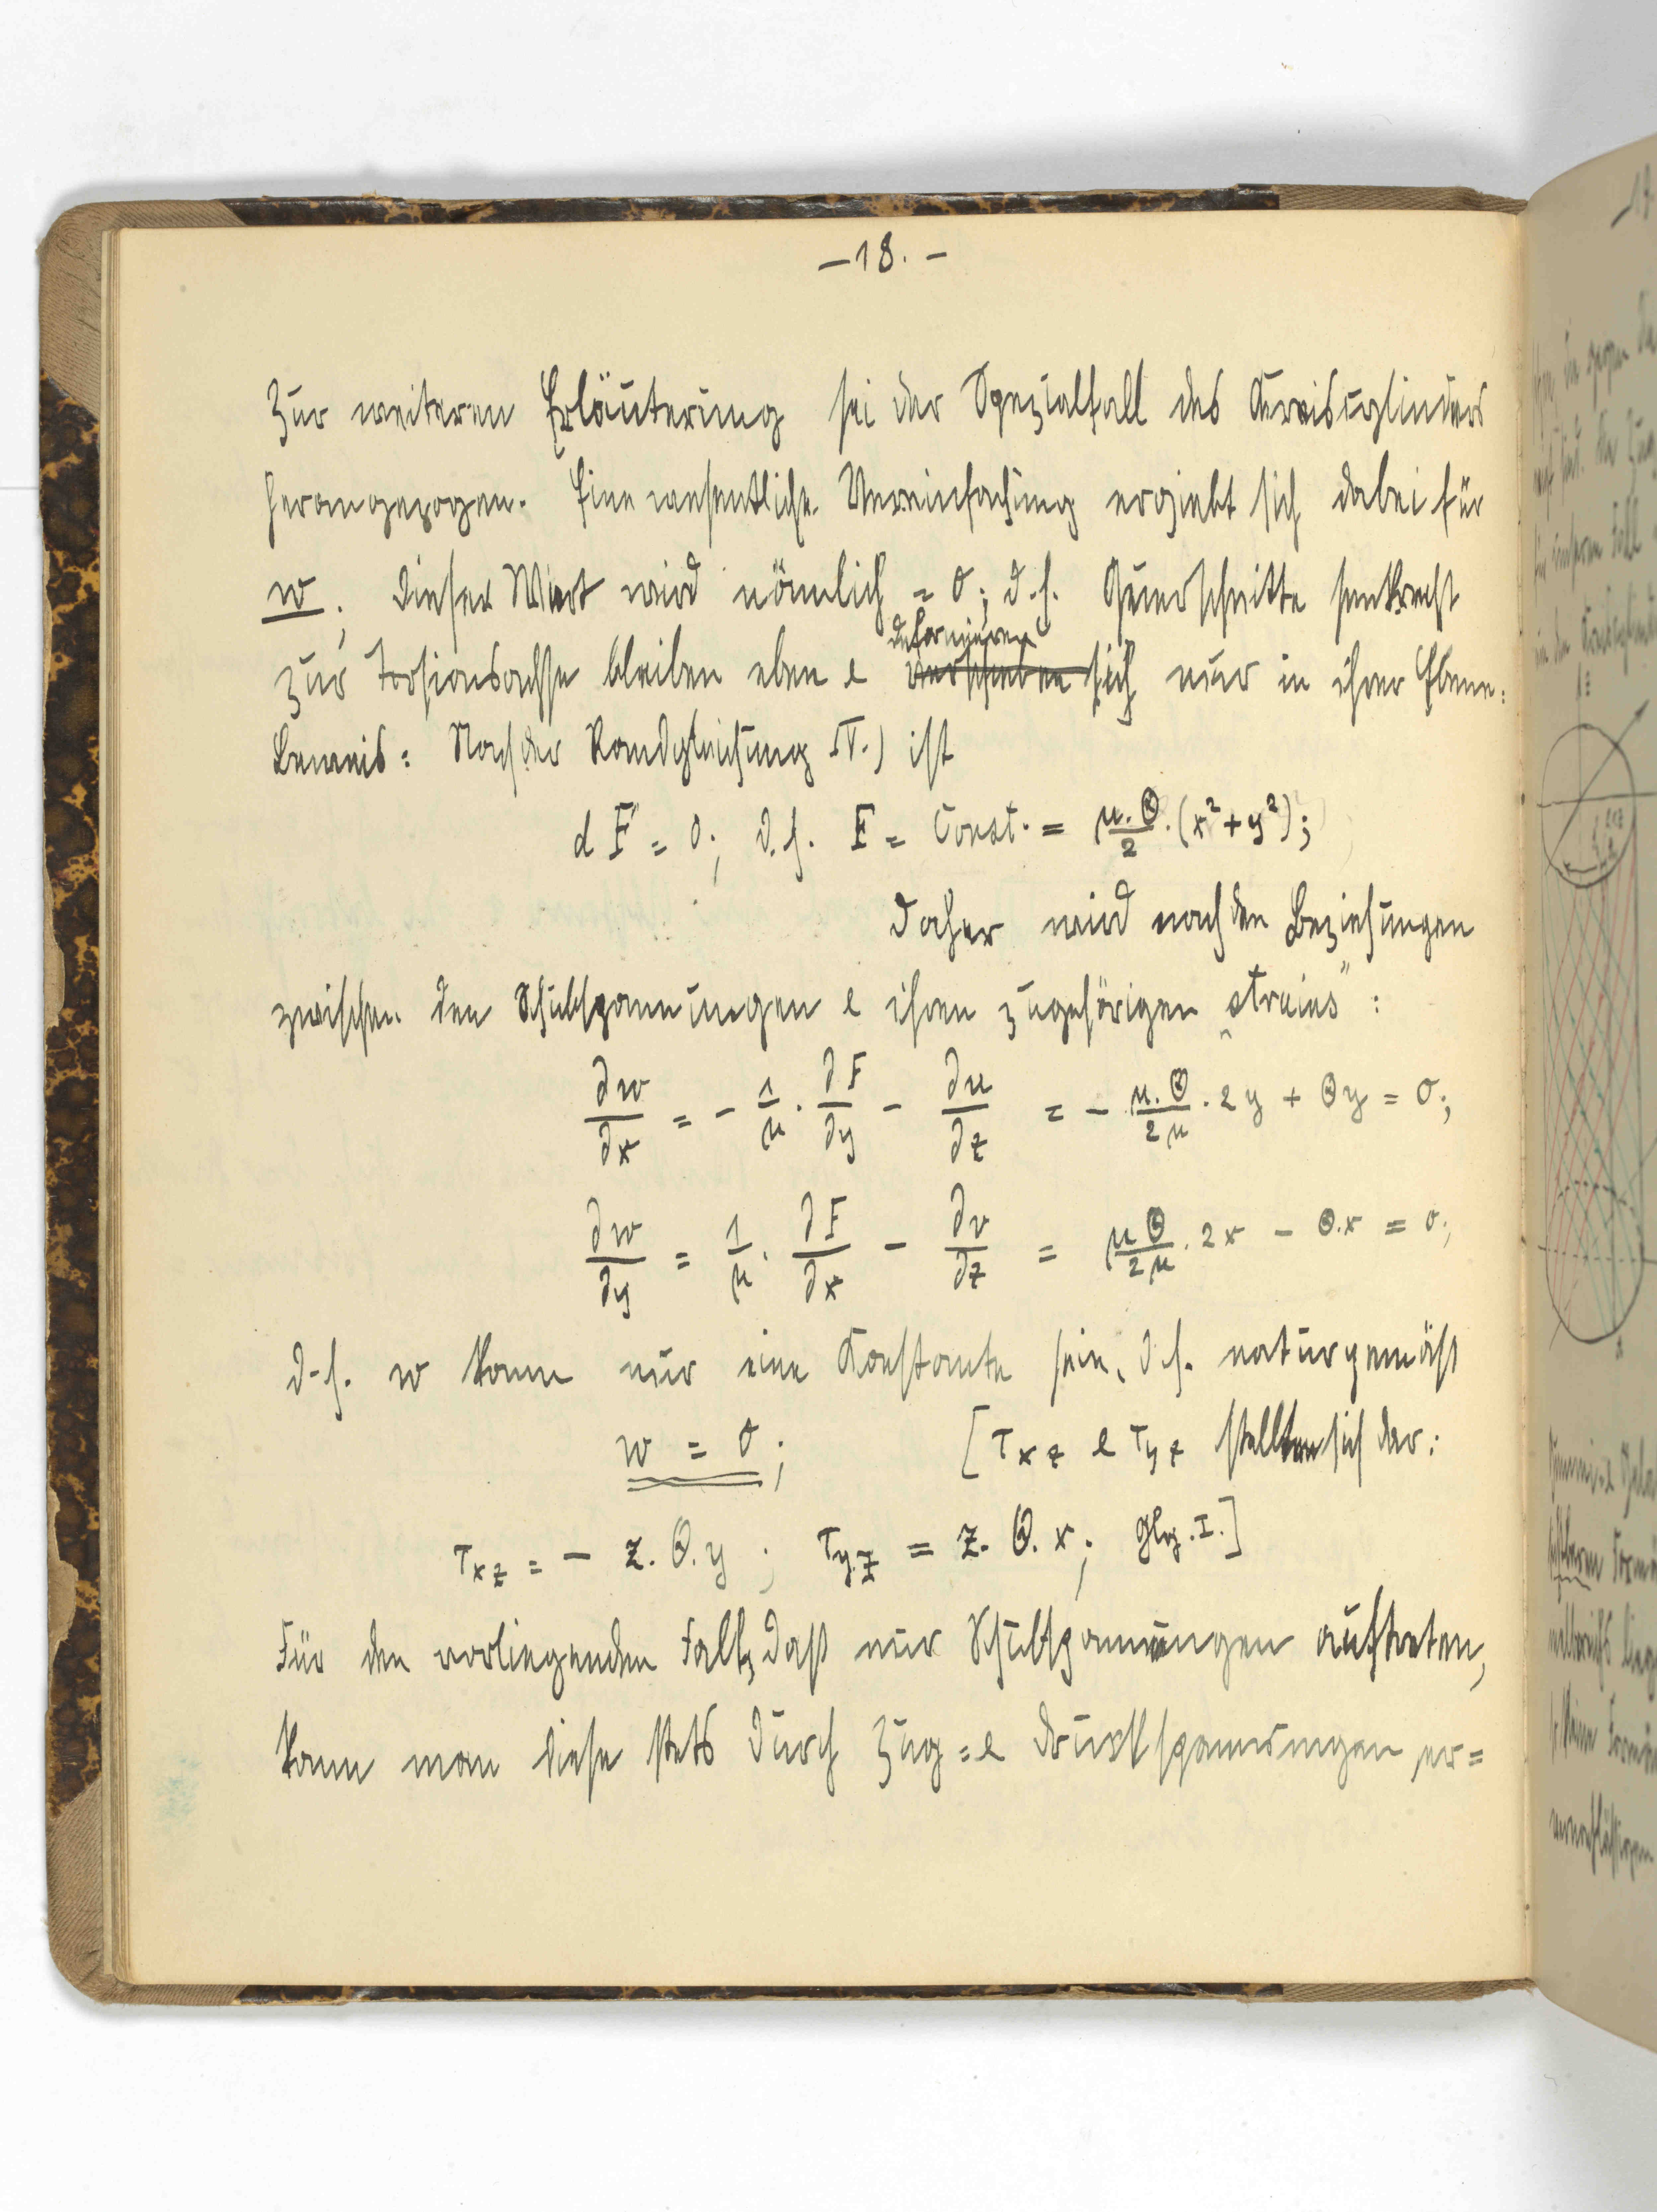 – 18. –
Zur weiteren Erläuterung sei der Spezialfall des Kreiscylinders
herangezogen. Eine wesentliche Vereinfachung ergiebt sich dabei für
w. Dieser Wert wird nämlich = 0; d.h. Querschnitte senkrecht
deformieren
zur Torsionsachse bleiben eben & verschieben sich nur in ihrer Ebene.
Beweis: Nach der Randgleichung IV.) ist
dF = 0; d.h. F = Const. = μ.Θ/2 . (x² + y²);
Daher wird nach den Beziehungen
zwischen den Schubspannungen & ihren zugehörigen „strains“:
∂w/∂x = – 1/μ . ∂F/∂y – ∂u/∂z = – μ.Θ/2μ . 2y + Θy = 0;
∂w/∂y = 1/μ . ∂F/∂x – ∂v/∂z = μΘ/2μ . 2x – Θ.x = 0;
d.h. w kann nur eine Konstante sein, d.h. naturgemäss
w = 0; [τxz & τyz stellten sich dar:
τxz = – z.Θ.y; τyz = z.Θ.x; Glg. I.]
Für den vorliegenden Fall, daß nur Schubspannungen auftreten,
kann man diese stets durch Zug= & Druckspannungen er=